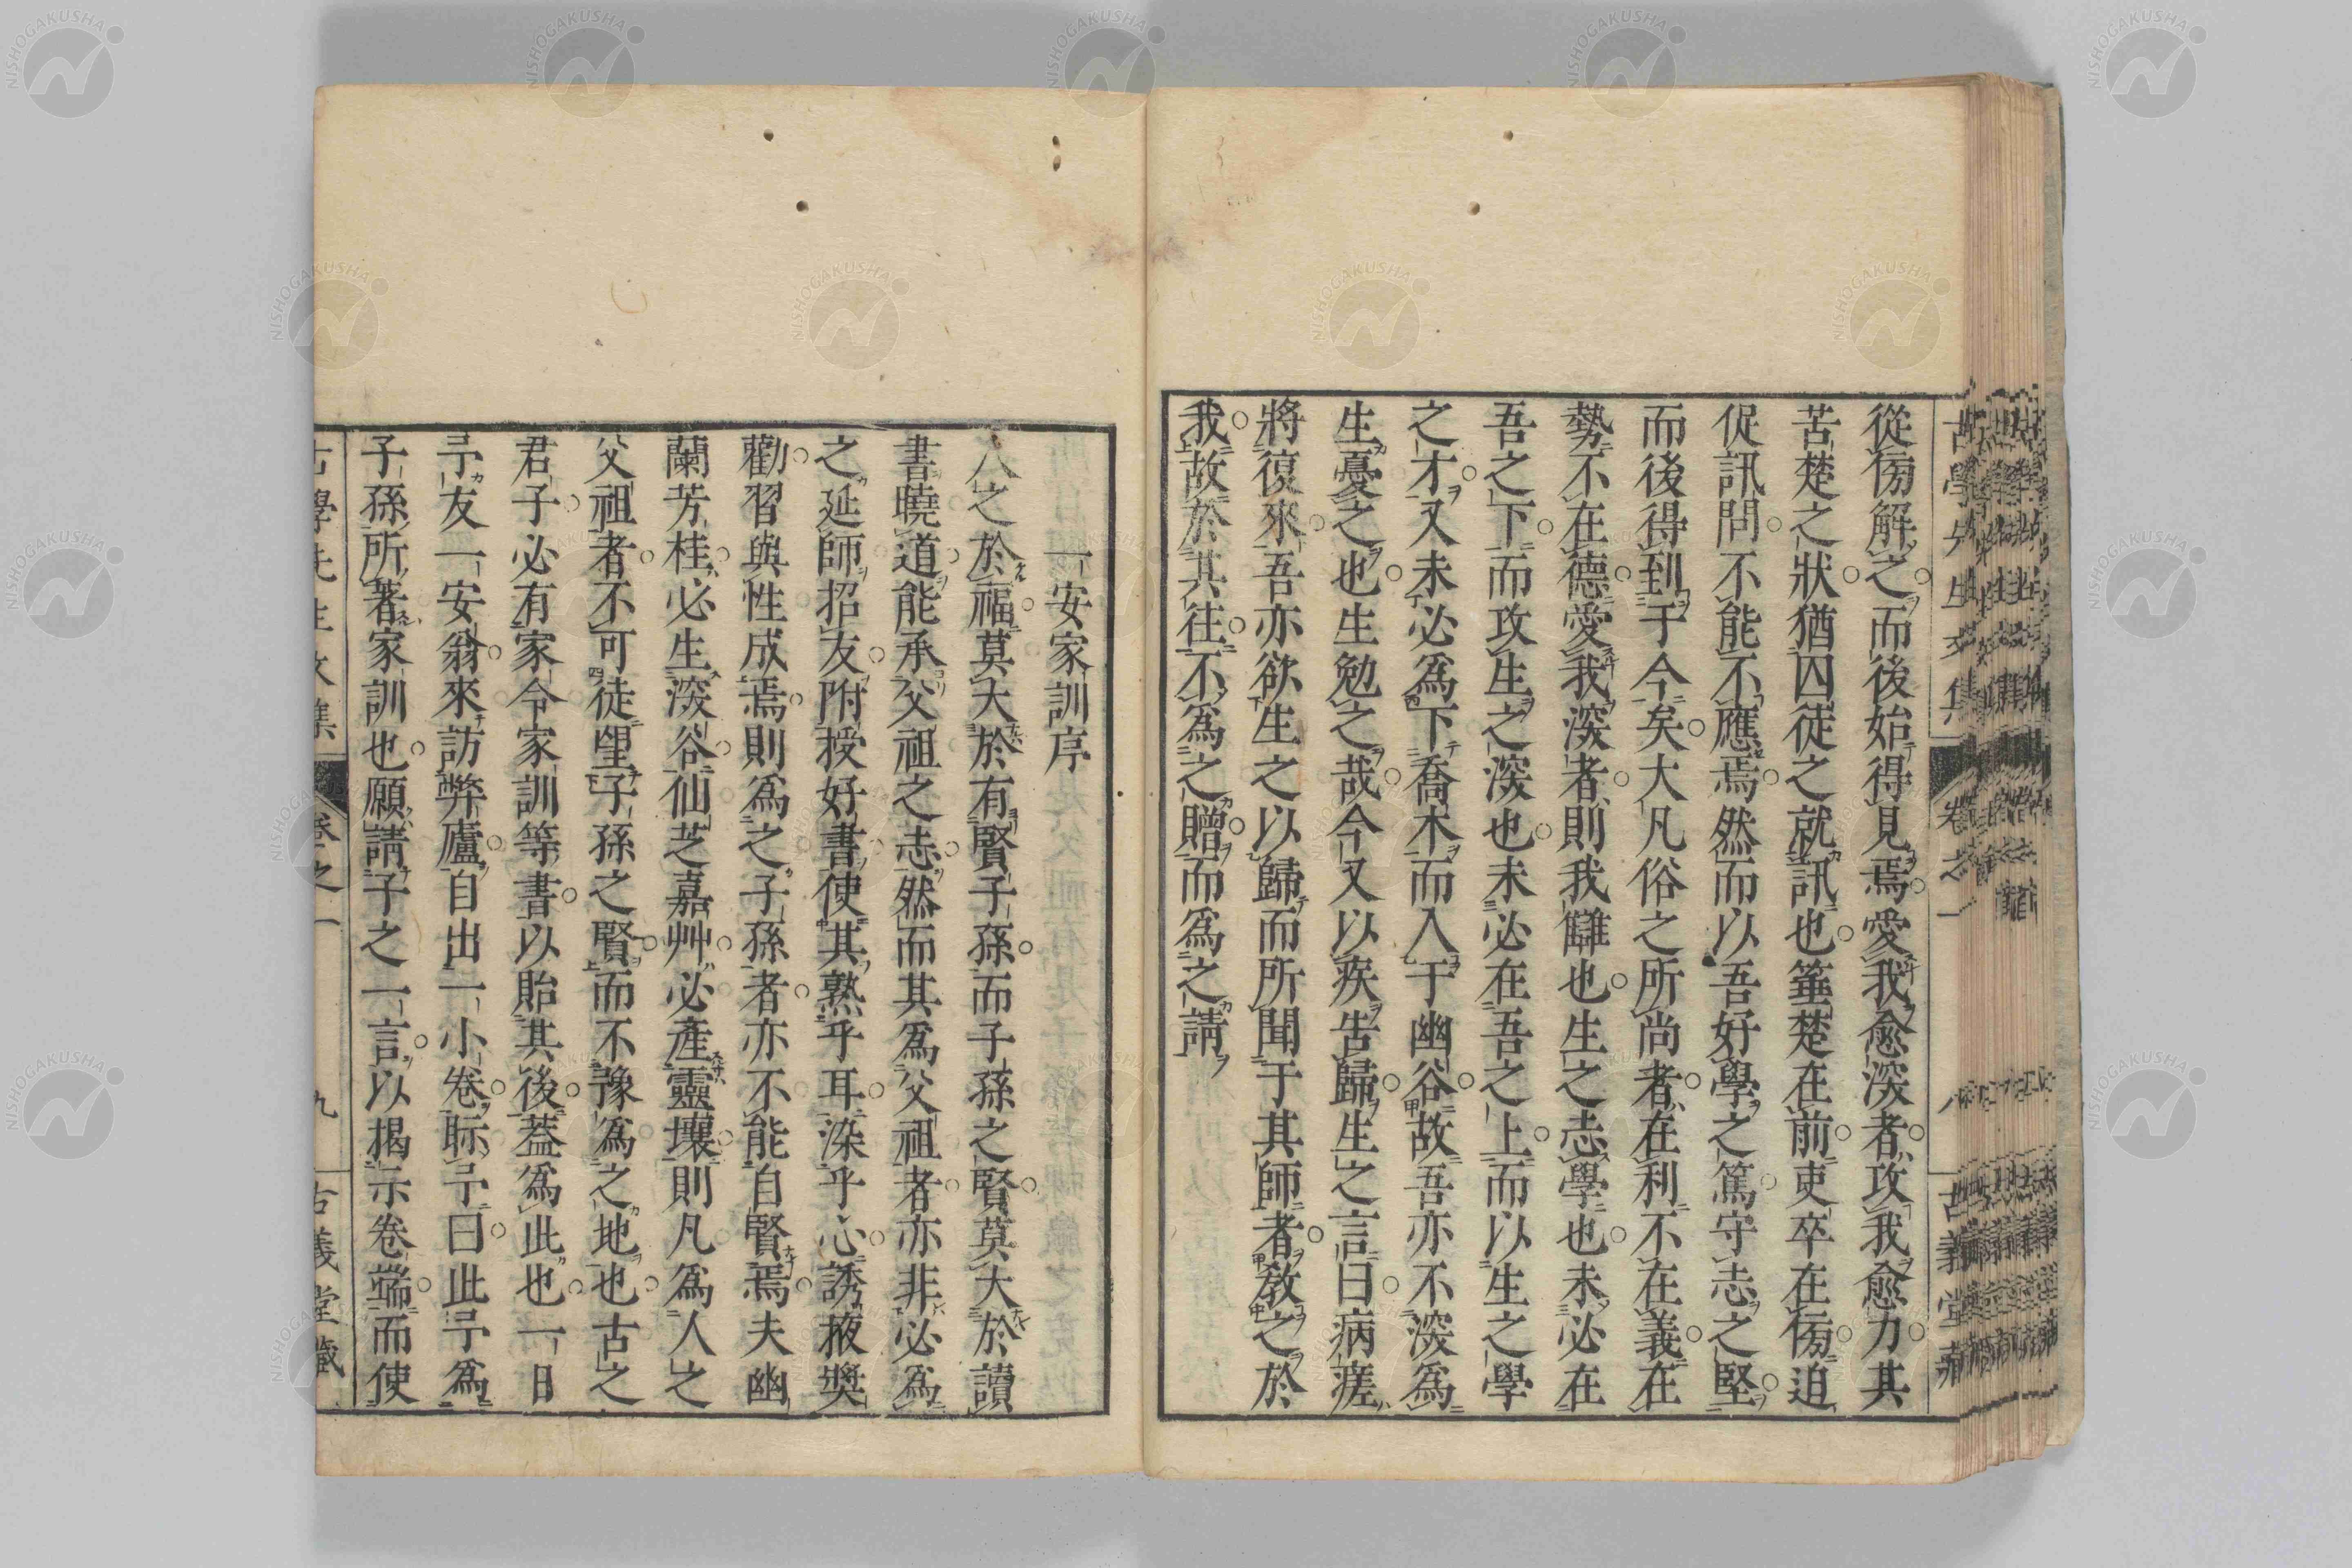 從傍解之而後始得見焉愛我愈深者攻我愈力其
苦楚之狀猶囚徒之就訊也箠楚在前吏卒在傍迫
促訊問不能不應焉然而以吾好學之篤守志之堅
而後得到于今矣大凡俗之所尚者在利不在義在
勢不在德愛我深者則我讎也生之志學也未必在
吾之下而攻生之深也未必在吾之上而以生之學
之才又未必為下喬木而入于幽谷故吾亦不深為
生憂之也生勉之哉今又以疾告歸生之言曰病瘥
將復來吾亦欲生之以歸而所聞于其師者教之於
我故於其往不為之贈而為之請
古學先生文集 卷之一 八 古義堂藏
一安家訓序
人之於福莫大於有賢子孫而子孫之賢莫大於讀
書曉道能承父祖之志然而其為父祖者亦非必為
之延師招友附授好書使其熟乎耳染乎心誘掖奬
勸習與性成焉則為之子孫者亦不能自賢焉夫幽
蘭芳桂必生深谷仙芝嘉艸必產靈壤則凡為人之
父祖者不可徒望子孫之賢而不豫為之地也古之
君子必有家令家訓等書以貽其後蓋為此也一日
予友一安翁來訪弊廬自出一小卷眎予曰此予為
子孫所著家訓也願請子之一言以揭示卷端而使
古學先生文集 卷之一 九 古義堂藏
NISHOGAKUSHA